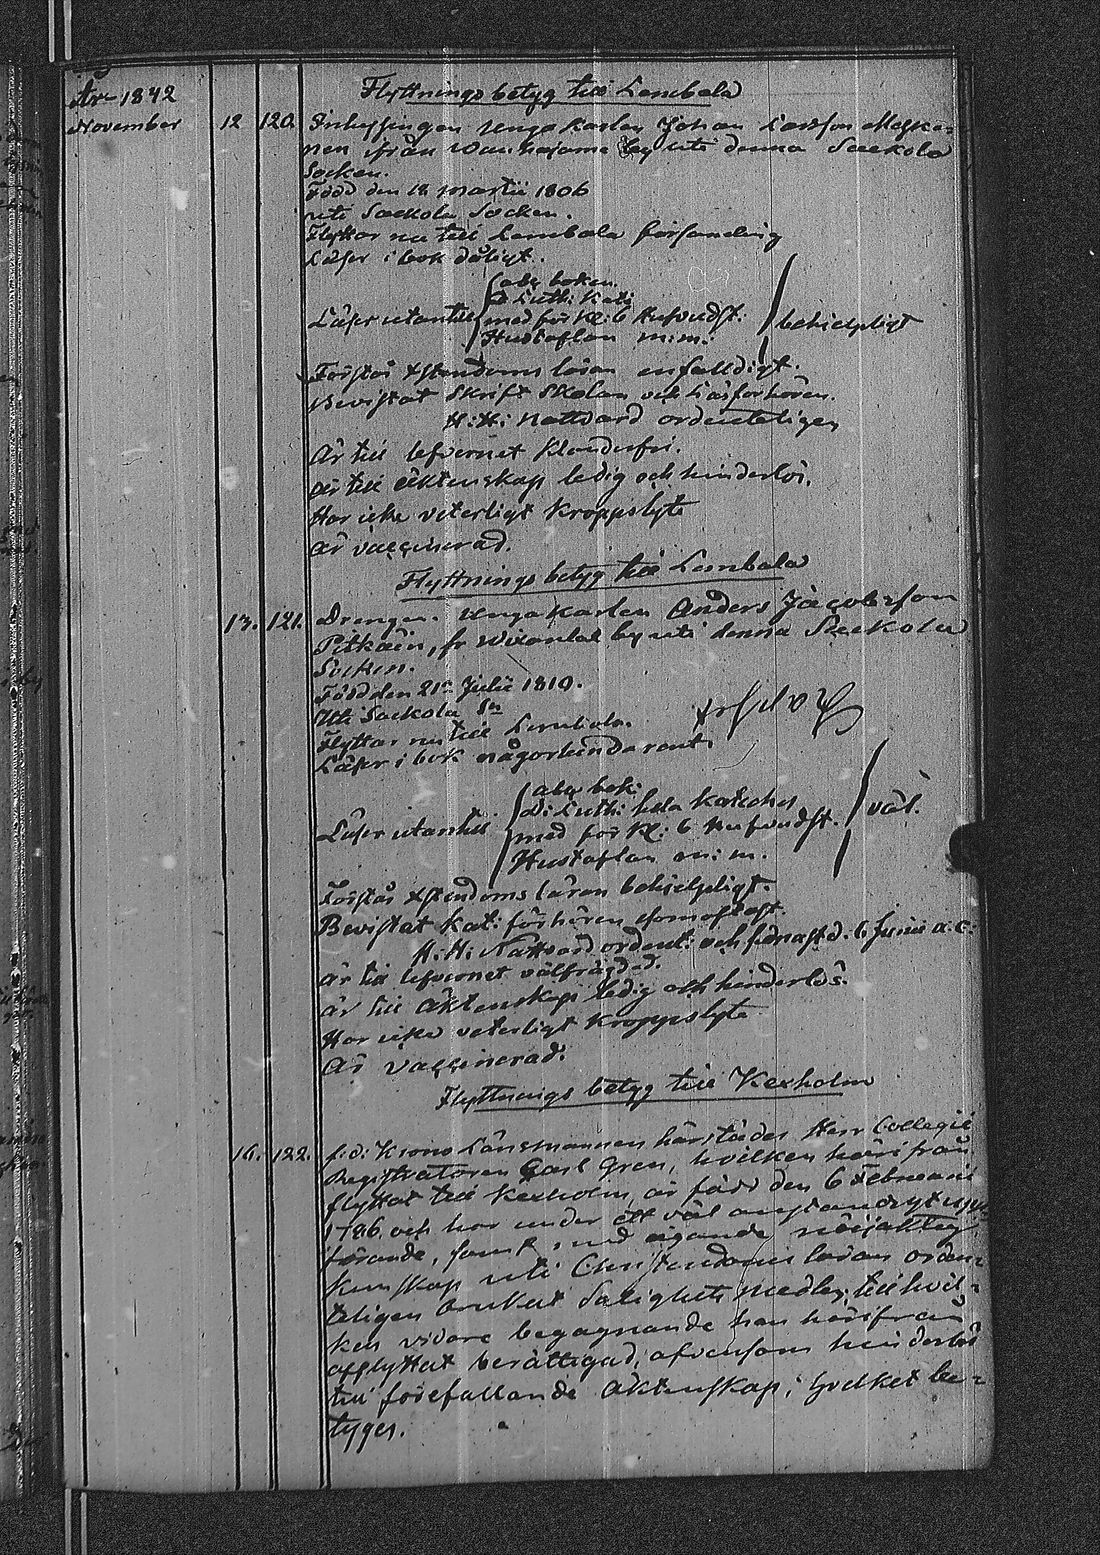 År 1842
Flyttnings betyg till Lembala
November 12 120. Inhysingen unga karlen Johan Larsson
nen ifrån by uti denna Sackola
Socken.
Född den 18 martii 1806
uti Sackola Socken.
Flyttar nu till Lembala församling
Läser i bok dåligt.
abc boken
D. Luth: Kat:
Läser utantill med för Kl: 6 Hufvudst: behielpligt
Hustaflan m:m:
Förstår Xstendoms läran enfalldigt.
Bevistat Skrift Skolan och Läsförhören.
H: H: Nattvard ordenteligen
Är till lefvernet Klanderfri.
är till äktenskap ledig och hinderlös.
Har icke veterligt Kroppslyte
är vaccinerad.
Flyttnings betyg till Lembala
13. 121. Drengen Unga karlen Anders Jacobsson
Pitkäin, fr by uti denna Sackola
Socken.
Född den 21 Julii 1819.
Uti Sackola Sn
Flyttar nu till Lembala.
Läser i bok någorlunda rent
abc bok:
D: Luth: hela Kateches
Läser utantill med för Kl: 6 Hufvudst. väl.
Hustaflan m: m.
Förstår Xstendoms läran behielpligt.
Bevistat Kat: förhören somoftast.
H: H: Nattvard ordent: och sednast d. 6 Junii a. c:
är till lefvernet välfräjdad.
är till äktenskap ledig och hinderlös.
Har icke veterligt Kroppslyte
Är vaccinerad.
Flyttnings betyg till Kexholm
16. 122. f: d: Krono Länsmannen härstädes Herr Collegii
Registratoren Carl Gren, hvilken härifrån
flyttat till Kexholm, är född den 6 Februarii
1786, och har under ett väl anständigt upp-
förande, samt med ägande
kunskap uti Christendoms läran orden-
teligen brukat Salighets medlen, till hvil-
kets vidare begagnande han härifrån
afflyttat berättigad, äfvensom hinderlös
till förefallande äktenskap; hvilket be-
tyges.